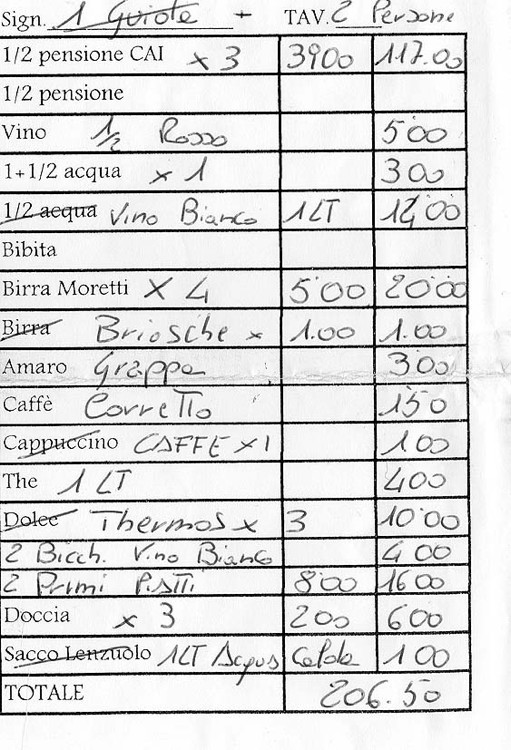 Sign. 1 Guiote + TAV. 2 Persone
1/2 pensione CAI x 3 3900 117.00
1/2 pensione
Vino 1/2 Rosso 500
1+1/2 acqua x 1 300
1/2 acqua Vino Bianco 1LT 12,00
Bibita
Birra Moretti X 4 500 2000
Birra Briosche x 1.00 1.00
Amaro Grappa 300
Caffè Corretto 150
Cappuccino CAFFE x1 100
The 1 LT 400
Dolce Thermos x 3 1000
2 Bicch. Vino Bianco 400
2 Primi PiATTi 800 1600
Doccia x 3 200 600
Sacco Lenzuolo 1LT Acqua Calda 100
TOTALE 206.50